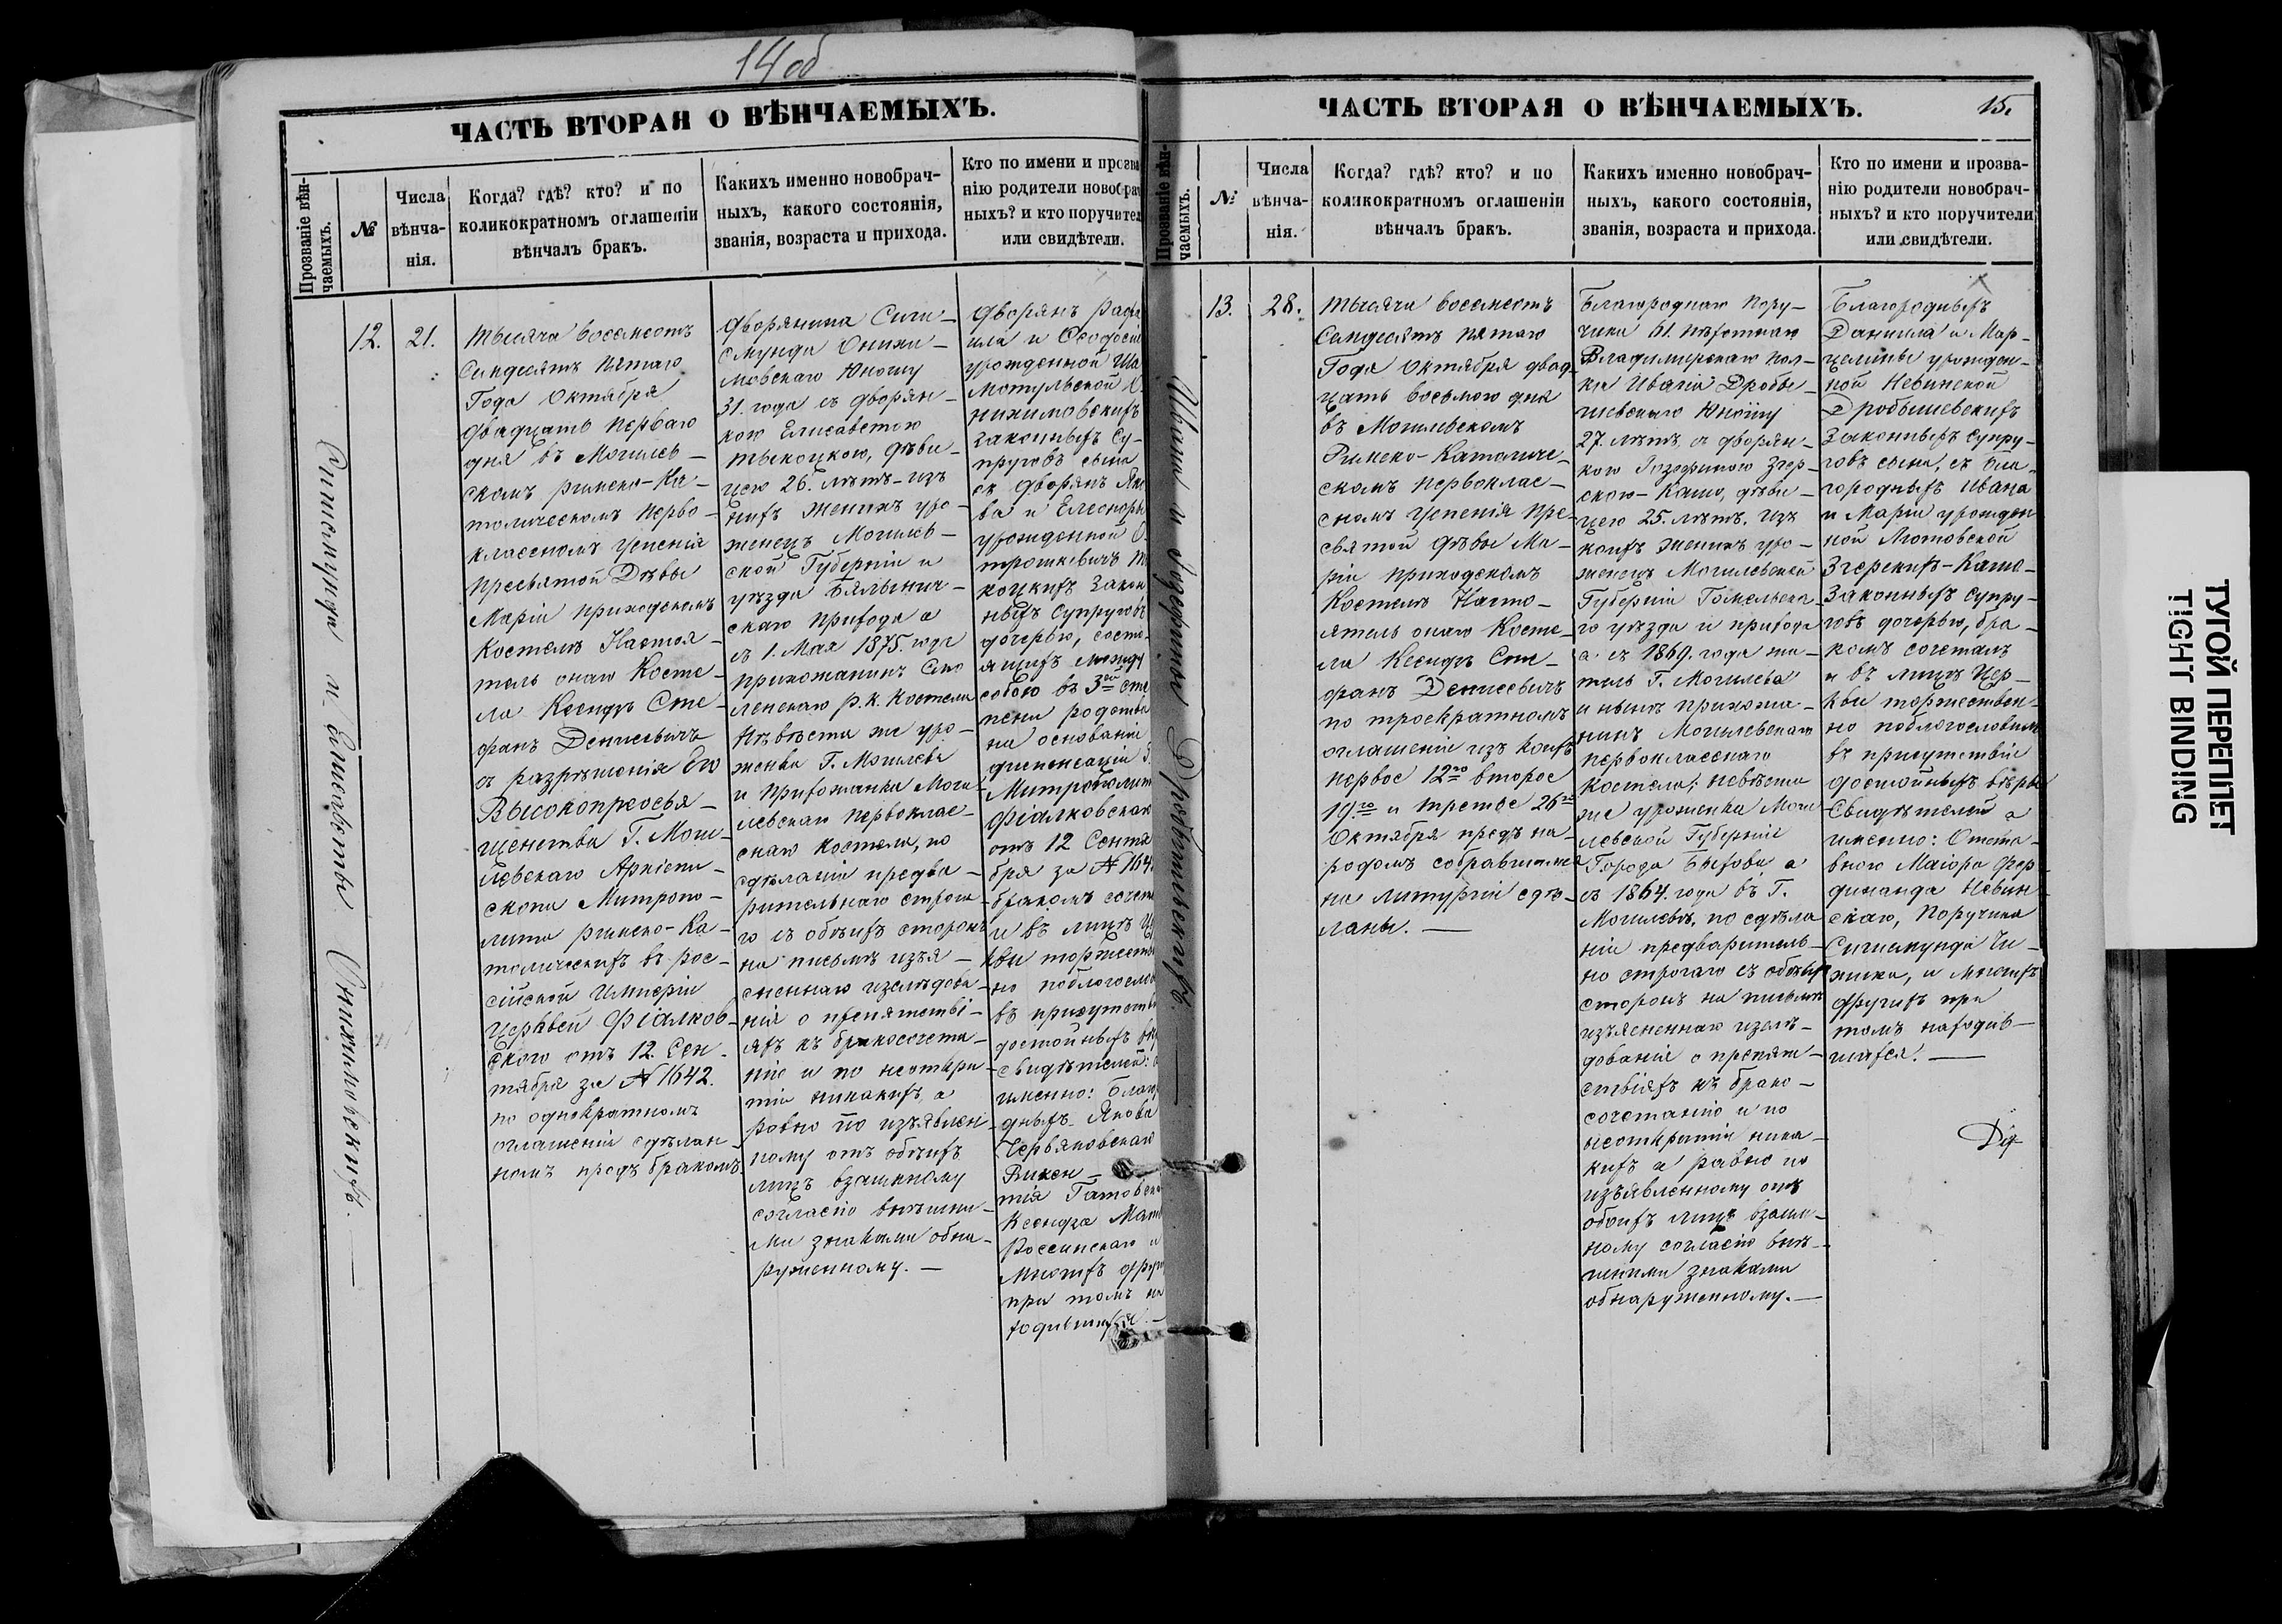 14 об
ЧАСТЬ ВТОРАЯ О ВѢНЧАЕМЫХЪ.
Прозваніе вѣн-
чаемыхъ.
№
Числа
вѣнча-
нія.
Когда? гдѣ? кто? и по
коликократномъ оглашеніи
вѣнчалъ бракъ.
Какихъ именно новобрач-
ныхъ, какого состоянія,
званія, возраста и прихода.
Кто по имени и прозва
нію родители новобрач
ныхъ? и кто поручител
или свидѣтели.
Сигизмунда и Елисавета
12.
21.
Тысяча восемсотъ
семдесятъ пятаго
Года Октября
двадцать перваго
дня въ Могилев-
скомъ римско-ка-
толическомъ перво-
классномъ Успенія
Пресвятой Дѣвы
Маріи приходскомъ
Костелѣ Настоя-
тель онаго Косте-
ла Ксендзъ Сте-
фанъ Денисевичъ
съ разрѣшенія Его
Высокопреосвя-
щенства Г. Моги-
левскаго Архіепи-
скопа Митропо-
лита римско-ка-
толическихъ въ рос-
сійской Имперіи
Церквей Фіалков-
скаго отъ 12. Сен-
тября за № 1642.
по однократномъ
оглашеніи сдѣлан-
номъ предъ бракомъ
Дворянина Сиги-
смунда Онихи-
мовскаго Юношу
31. года съ дворян-
кою Елисаветою
Тыкоцкою, дѣви-
цею 26. лѣтъ - изъ
нихъ женихъ уро-
женецъ Могилев-
ской Губерніи и
уѣзда Бялынич-
скаго прихода а
съ 1. Мая 1875. года
прихожанинъ Смо
ленскаго р. к. костела
Невѣста же уро-
женка Г. Могилева
и прихожанка Моги-
левскаго первоклас-
снаго костела, по
сдѣланіи предва-
рительнаго строга-
го съ обѣихъ сторонъ
на письмѣ изъя-
сненнаго изслѣдова-
нія о препятстві-
яхъ къ бракосочета-
нію и по неоткры-
тіи никакихъ, а
равно по изъявлен-
ному отъ обоихъ
лицъ взаимному
согласію внѣшни-
ми знаками обна-
руженному. —
Дворянъ Рафа
ила и Ѳеодосіи
урожденной Ша
мотульской О
нихимовскихъ
законныхъ су-
пруговъ сына
съ дворянъ Яко
ва и Елеоноры
урожденной О
трошкевичъ Ты
коцкихъ закон
ныхъ супруговъ
дочерью, состо-
ящихъ между
собою въ 3ей сте
пени родства
на основаніи
диспенсаціи Г.
Митрополит
Фіалковскаго
отъ 12 Сентя
бря за № 164
бракомъ сочета
и въ лицѣ Це
кви торжестве
но поблагослов
въ присутстві
достойныхъ вѣ
свидѣтелей: а
именно: Благо
дныхъ Якова
Червяковскаго
Викен-
тія Гатовска
Ксендза Мат
Россинскаго и
многихъ друг
при томъ на
ходившихся. —
ЧАСТЬ ВТОРАЯ О ВѢНЧАЕМЫХЪ.
15.
Прозваніе вѣн-
чаемыхъ.
№
Числа
вѣнча-
нія.
Когда? гдѣ? кто? и по
коликократномъ оглашеніи
вѣнчалъ бракъ.
Какихъ именно новобрач-
ныхъ, какого состоянія,
званія, возраста и прихода.
Кто по имени и прозва-
нію родители новобрач-
ныхъ? и кто поручители
или свидѣтели.
13.
28.
Тысяча восемсотъ
семдесятъ пятаго
Года Октября двад-
цать восьмого дня
въ Могилевскомъ
Римско-Католиче-
скомъ первоклас-
сномъ Успенія Пре-
святой Дѣвы Ма-
ріи приходскомъ
Костелѣ Насто-
ятель онаго Косте-
ла Ксендзъ Сте-
фанъ Денисевичъ
по троекратномъ
оглашеніи изъ коихъ
первое 12го второе
19.го и третье 26го
Октября предъ на-
родомъ собравшимся
на литургіи сдѣ-
ланы. —
Благороднаго Пору-
чика 61. пѣхотнаго
Владимірскаго пол-
ка Ивана Дробы-
шевскаго Юношу
27. лѣтъ, съ дворян-
кою Іозефиною Згер-
скою-Кашо, дѣви-
цею 25. лѣтъ. Изъ
коихъ женихъ уро-
женецъ Могилевской
Губерніи Гомельска-
го уѣзда и прихода
а съ 1869. года жи-
тель Г. Могилева
и нынѣ прихожа-
нинъ Могилевскаго
первокласснаго
Костела; невѣста
же уроженка Моги
левской Губерніи
Города Быхова а
съ 1864. года въ Г.
Могилевѣ, по сдѣла
ніи предваритель-
но строгаго съ обѣихъ
сторонъ на письмѣ
изъясненнаго изслѣ-
дованія о препят-
ствіяхъ къ брако-
сочетанію и по
неоткрытіи ника-
кихъ а равно по
изъявленному отъ
обоихъ лицъ взаим-
ному согласію внѣ-
шними знаками
обнаруженному. —
Благородныхъ
Даниила и Мар-
целины урожден-
ной Невинской
Дробышевскихъ
Законныхъ супру-
говъ сына, съ бла-
городныхъ Ивана
и Маріи урожден
ной Лютовской
Згерскихъ-Кашо-
Законныхъ супру-
говъ дочерью, бра-
комъ сочеталъ
и въ лицѣ Цер-
кви торжествен-
но поблагословилъ
въ присутствіи
достойныхъ вѣры
Свидѣтелей а
именно: Отста-
внаго Маіора Фер
динанда Невин-
скаго, Поручика
Сигизмунда Чи-
жика, и многихъ
другихъ при
томъ находив-
шихся. —
ТУГОЙ ПЕРЕПЛЕТ
TIGHT BINDING